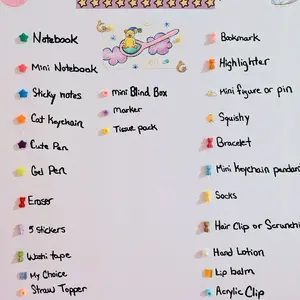 Notebook
Mini Notebook
Sticky notes
Cat Keychain
Cute Pen
Gel Pen
Eraser
5 Stickers
Washi tape
My Choice
Straw Topper
mini Blind Box
Marker
Tissue pack
Bookmark
Highlighter
Mini figure or pin
Squishy
Bracelet
Mini Keychain pendant
Socks
Hair Clip or Scrunchi
Hand Lotion
Lip balm
Acrylic Clip